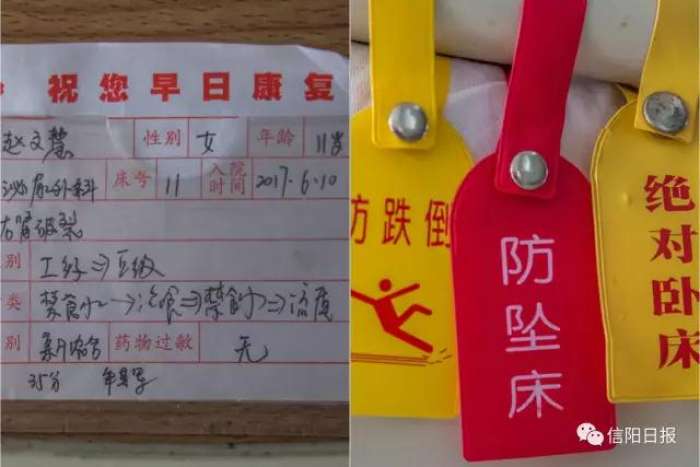 祝您早日康复
赵文慧 性别 女 年龄 11岁
泌尿外科 床号 11 入院时间 2017.6.10
右肾破裂
别 I级⇒II级
类 禁食水→冷食⇒禁食水⇒流质
别 新农合 药物过敏 无
35分
防跌倒
防坠床
绝对卧床
信阳日报